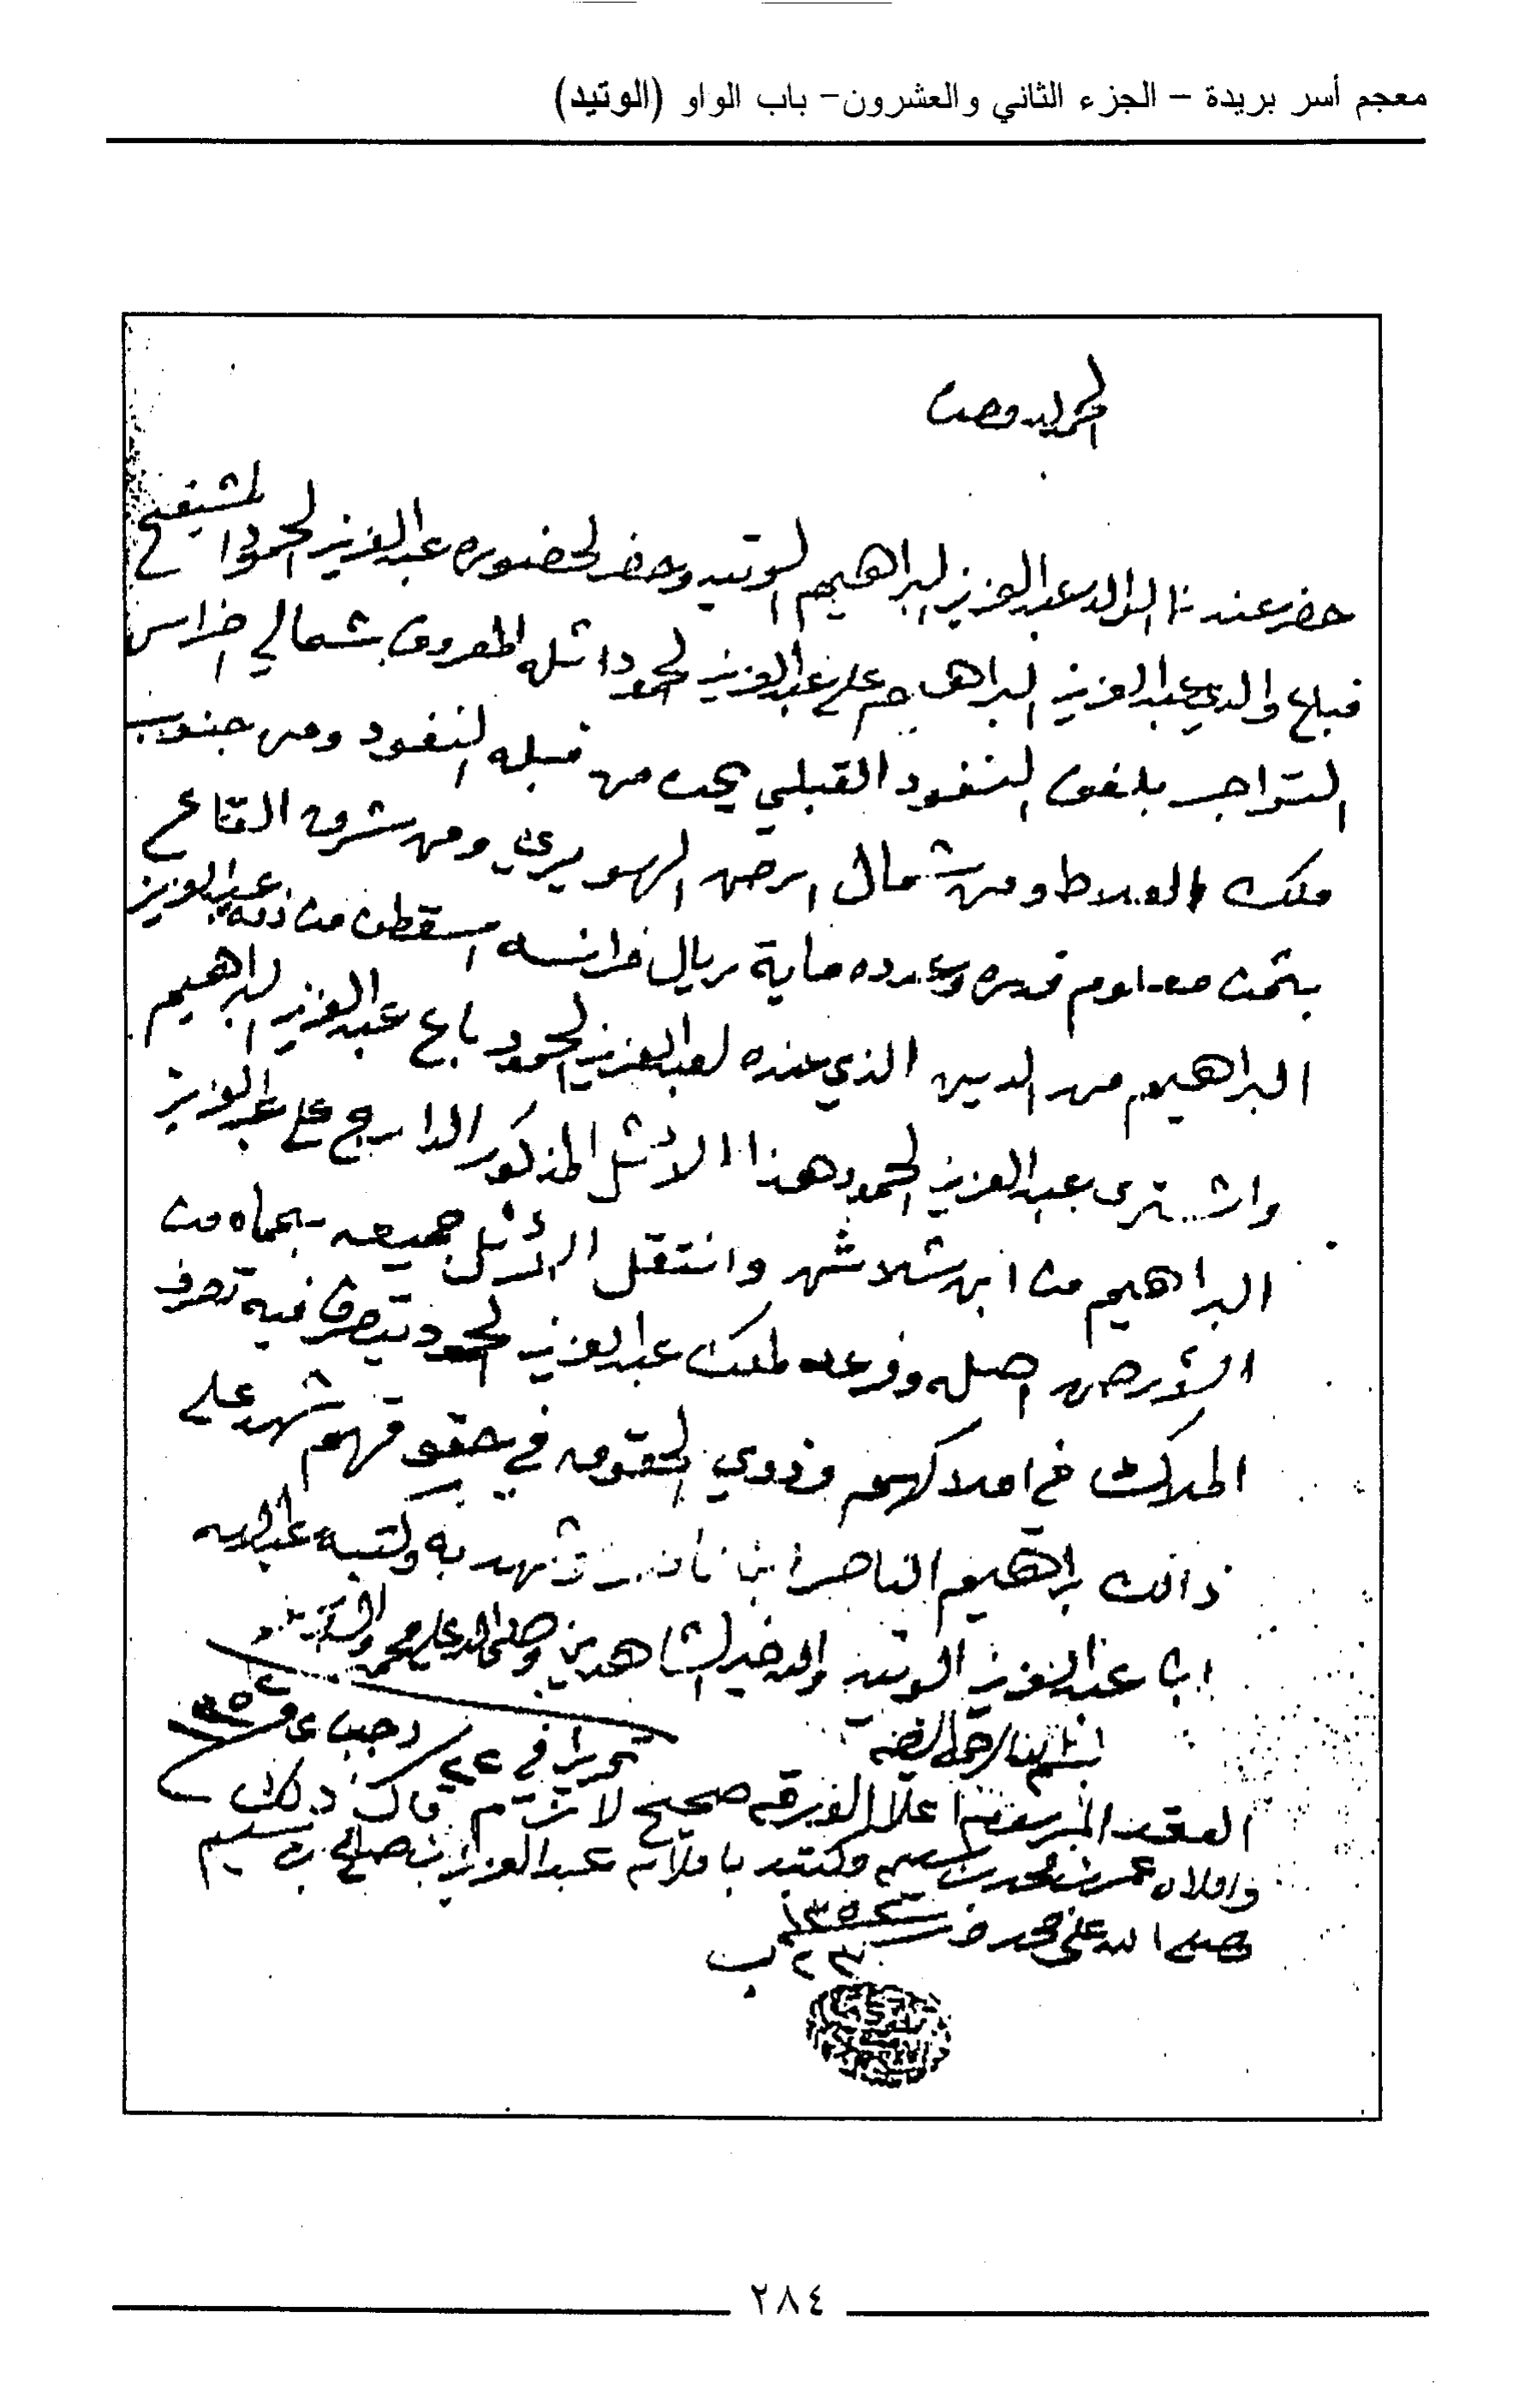 معجم أسر بريدة – الجزء الثاني والعشرون– باب الواو (الوتيد)
الحمد لله وحده
حضر عندنا الوالد عبدالعزيز البراهيم الوتيد وحضر لحضوره عبدالعزيز الحمود المشيقح
فباع والدي عبدالعزيز البراهيم على عبدالعزيز الحمود اثله المعروف بشمالي
النفود القبلي يحده من قبله النفود ومن جنوب
ملك ومن شمال ارض الهويري ومن شرق القاع
بثمن معلوم قدره وعدده ماية ريال فرانسه اسقطهن من ذمة عبدالعزيز
البراهيم من الدين الذي عنده لعبدالعزيز الحمود باع عبدالعزيز البراهيم
واشترى عبدالعزيز الحمود هذا الاثل المذكور الدارج على عبدالعزيز
البراهيم من ابن شلاش وانتقل الاثل جميعه بحماه من
الأرض اصله وفرعه لملك عبدالعزيز الحمود يتصرف فيه تصرف
الملاك في املاكهم وذوي الحقوق في حقوقهم شهد على
ذالك براهيم الناصر ابن وشهد به وكتبه عبدالله
ابن عبدالعزيز الوتيد والله خير الشاهدين وصلى الله على محمد
تحريرا في ٢٢ رجب
بسم الله الرحمن الرحيم
العقد المرسوم اعلا الورقه صحيح لازم قال ذلك
واملاه عمر بن محمد بن سليم وكتبه باملائه عبدالعزيز بن صالح بن سليم
صلى الله على محمد ١٣٥٢
٢٣ ب
٢٨٤